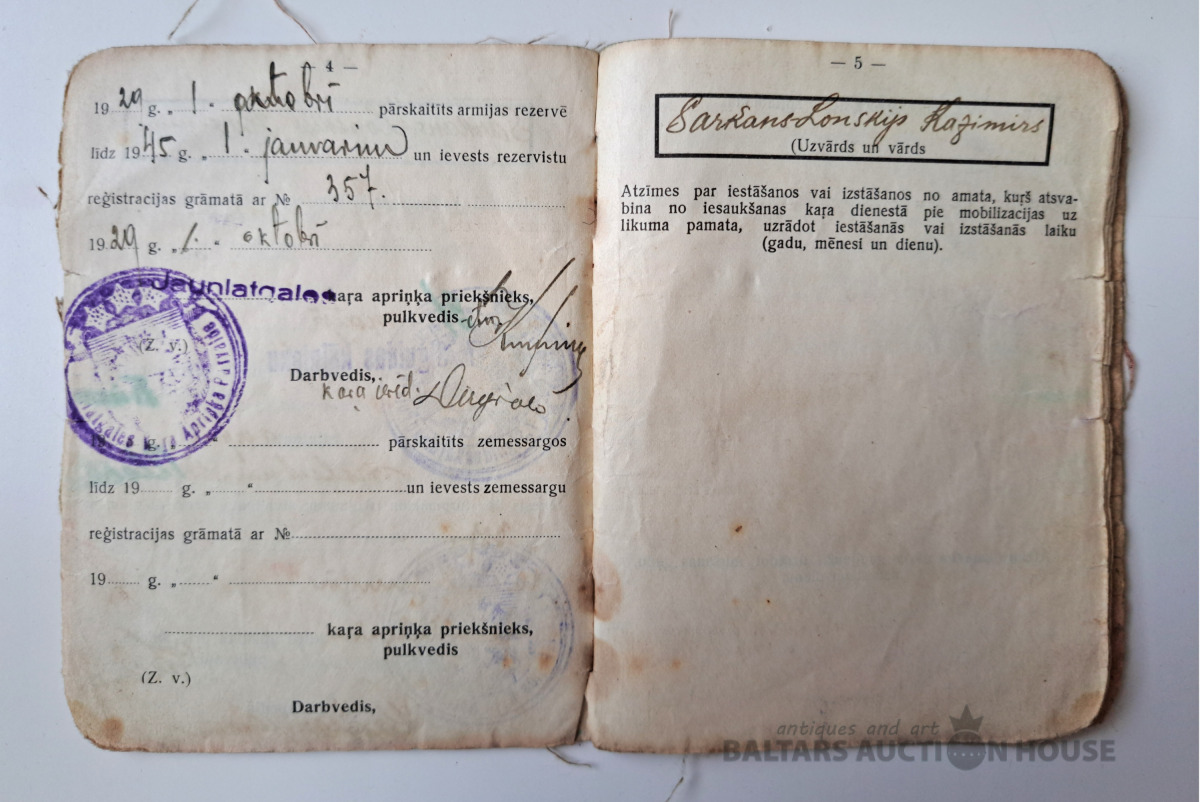 — 4 —
1929 g. „ 1. oktobrī pārskaitīts armijas rezervē
līdz 1945 g. „ 1. janvarim un ievests rezervistu
reģistracijas grāmatā ar № 357.
1929 g. „1.“ oktobrī
Jaunlatgales kaŗa apriņķa priekšnieks,
pulkvedis
(Z. v.)
Darbvedis,
kaŗa ierēd.
19 g. “ pārskaitīts zemessargos
līdz 19 g. „ “ un ievests zemessargu
reģistracijas grāmatā ar №
19 g. „ “
kaŗa apriņķa priekšnieks,
pulkvedis
(Z. v.)
Darbvedis,
— 5 —
Sarkans-Lonskijs Kazimirs
(Uzvārds un vārds
Atzīmes par iestāšanos vai izstāšanos no amata, kuŗš atsva-
bina no iesaukšanas kaŗa dienestā pie mobilizacijas uz
likuma pamata, uzrādot iestāšanās vai izstāšanās laiku
(gadu, mēnesi un dienu).
antiques and art
BALTARS AUCTION HOUSE